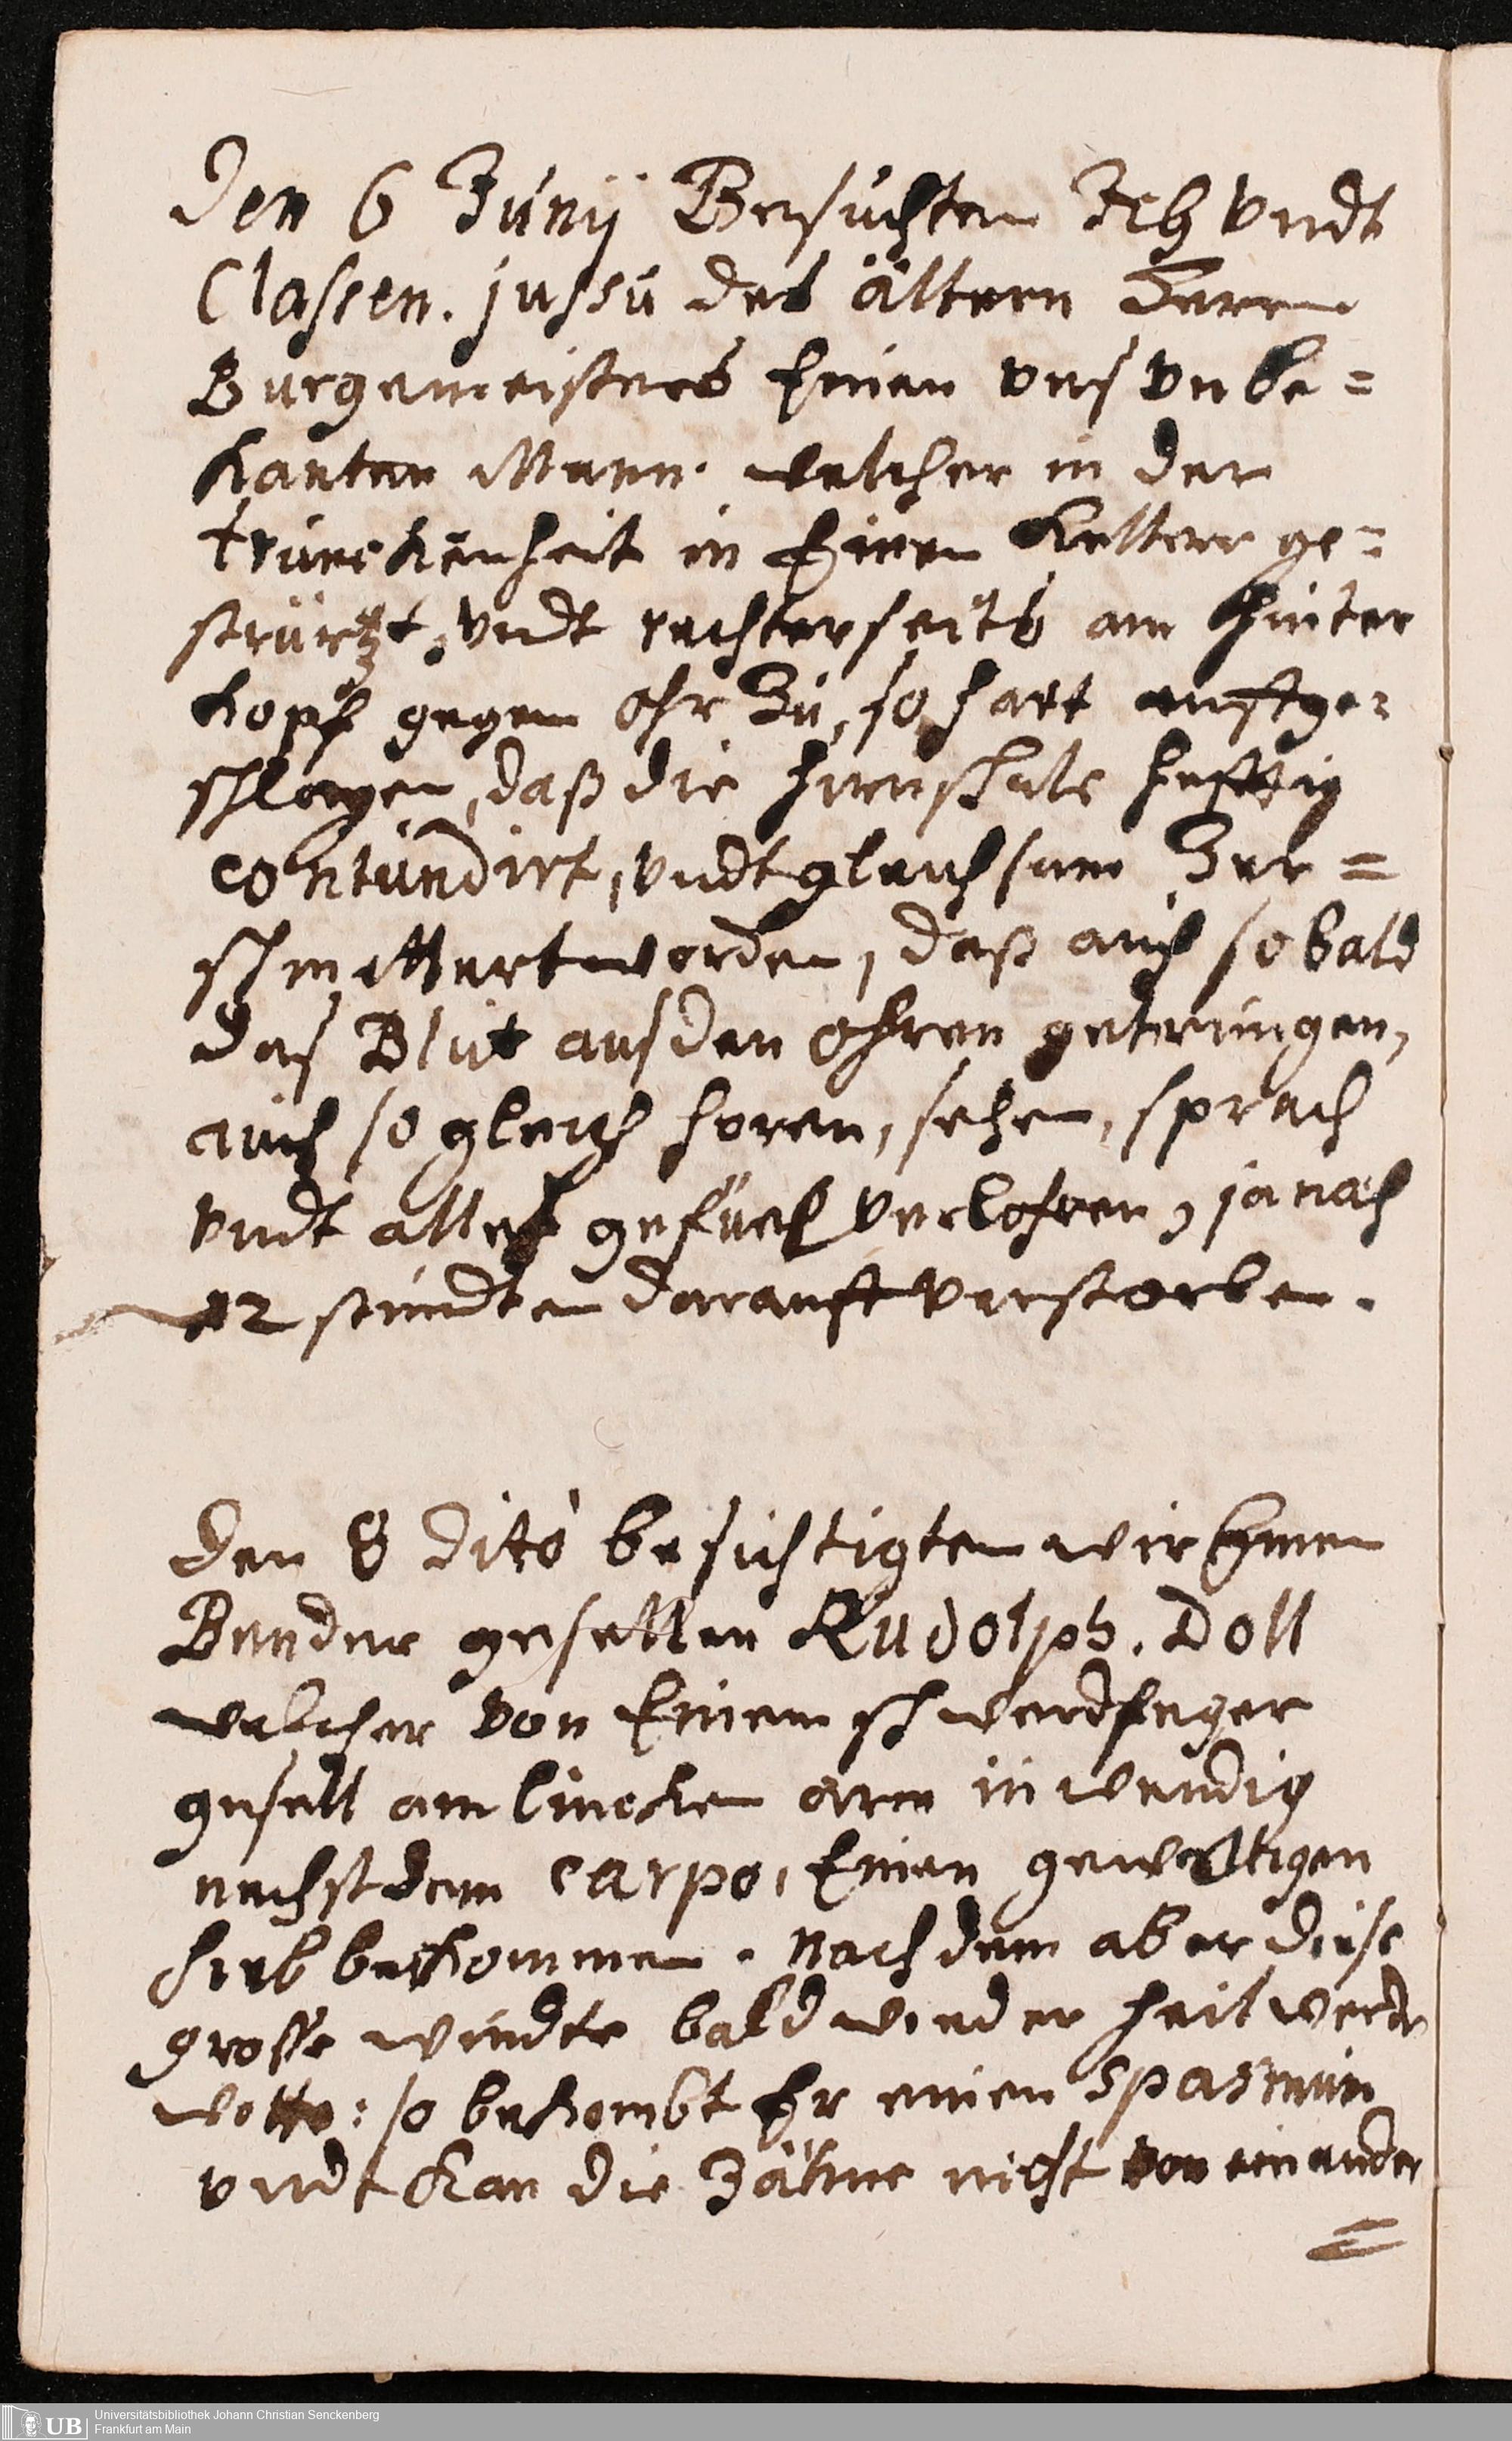 Den 6 Junij Besuchten Ich vndt
Classen. jussu des ältern Herrn
Burgemeisters Einen vns vnbe=
kanten Mann. welcher in der
trunckenheit in Einen Keller ge=
stürtzt, vndt rechterseits am hinter
kopf gegem ohr Zu, so hart auffge=
schlagen, daß die hirnschale hefftig
contundirt, vndt gleichsam Zer=
schmettert worden, daß auch so bald
das Blut aus den ohren getrungen,
auch so gleich horen, sehen, sprach
vndt alles gefuehl verlohren, ja nach
12 stundten darauff verstorben.
Den 8 dito besichtigten wir Einen
Bender gesellen Rudolph. Doll
welcher von Einem schwerdfeger
gesell am lincken arm inwendig
nechst dem carpo, Einen gewaltigen
hieb bekommen. Nach dem aber diese
grosse wundte bald wieder heil werde
wolte: so bekombt Er einen spasmum
vndt kan die Zähne nicht von einander
=
Universitätsbibliothek Johann Christian Senckenberg
UB Frankfurt am Main